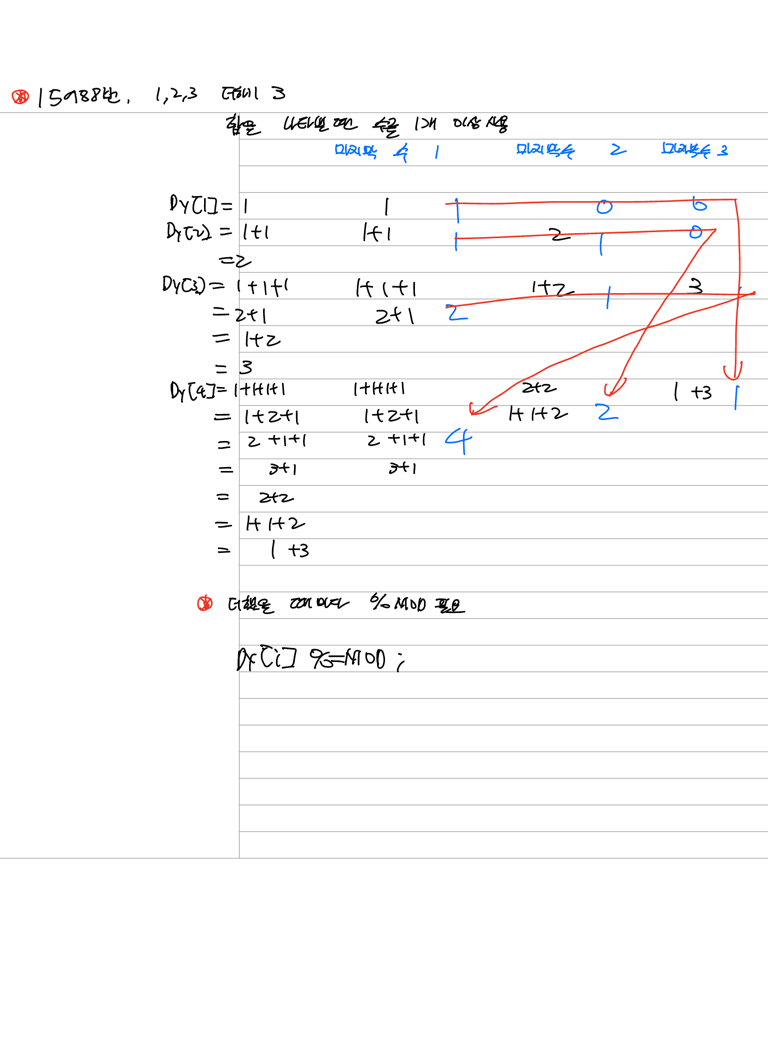 15988번. 1,2,3 더하기 3
합을 나타낼 때는 수를 1개 이상 사용
마지막 수 1 마지막수 2 마지막수 3
Dy[1] = 1 1 1 0 0
Dy[2] = 1+1 1+1 1 2 1 0
=2
Dy[3] = 1+1+1 1+1+1 1+2 3
= 2+1 2+1 2 1
= 1+2
= 3
Dy[4] = 1+1+1+1 1+1+1+1 2+2 1+3 1
= 1+2+1 1+2+1 1+1+2 2
= 2+1+1 2+1+1 4
= 3+1 3+1
= 2+2
= 1+1+2
= 1+3
더했을 때마다 %MOD 필요
Dy[i] %=MOD;